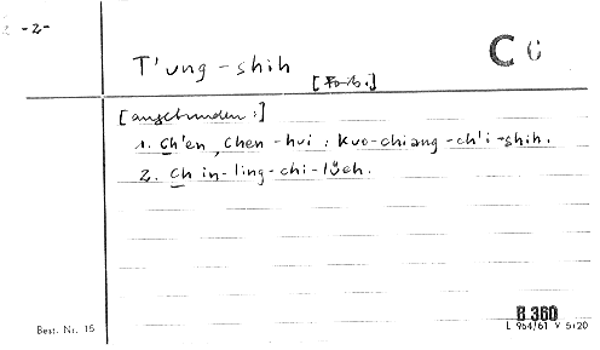 -2-
C
T'ung-shih
[Forts.]
[angebunden:]
1. Ch'en, Chen-hui: Kuo-chiang-ch'i-shih.
2. Chin-ling-chi-lüeh.
Best. Nr. 15
B 360
L 964/61 V 5/20